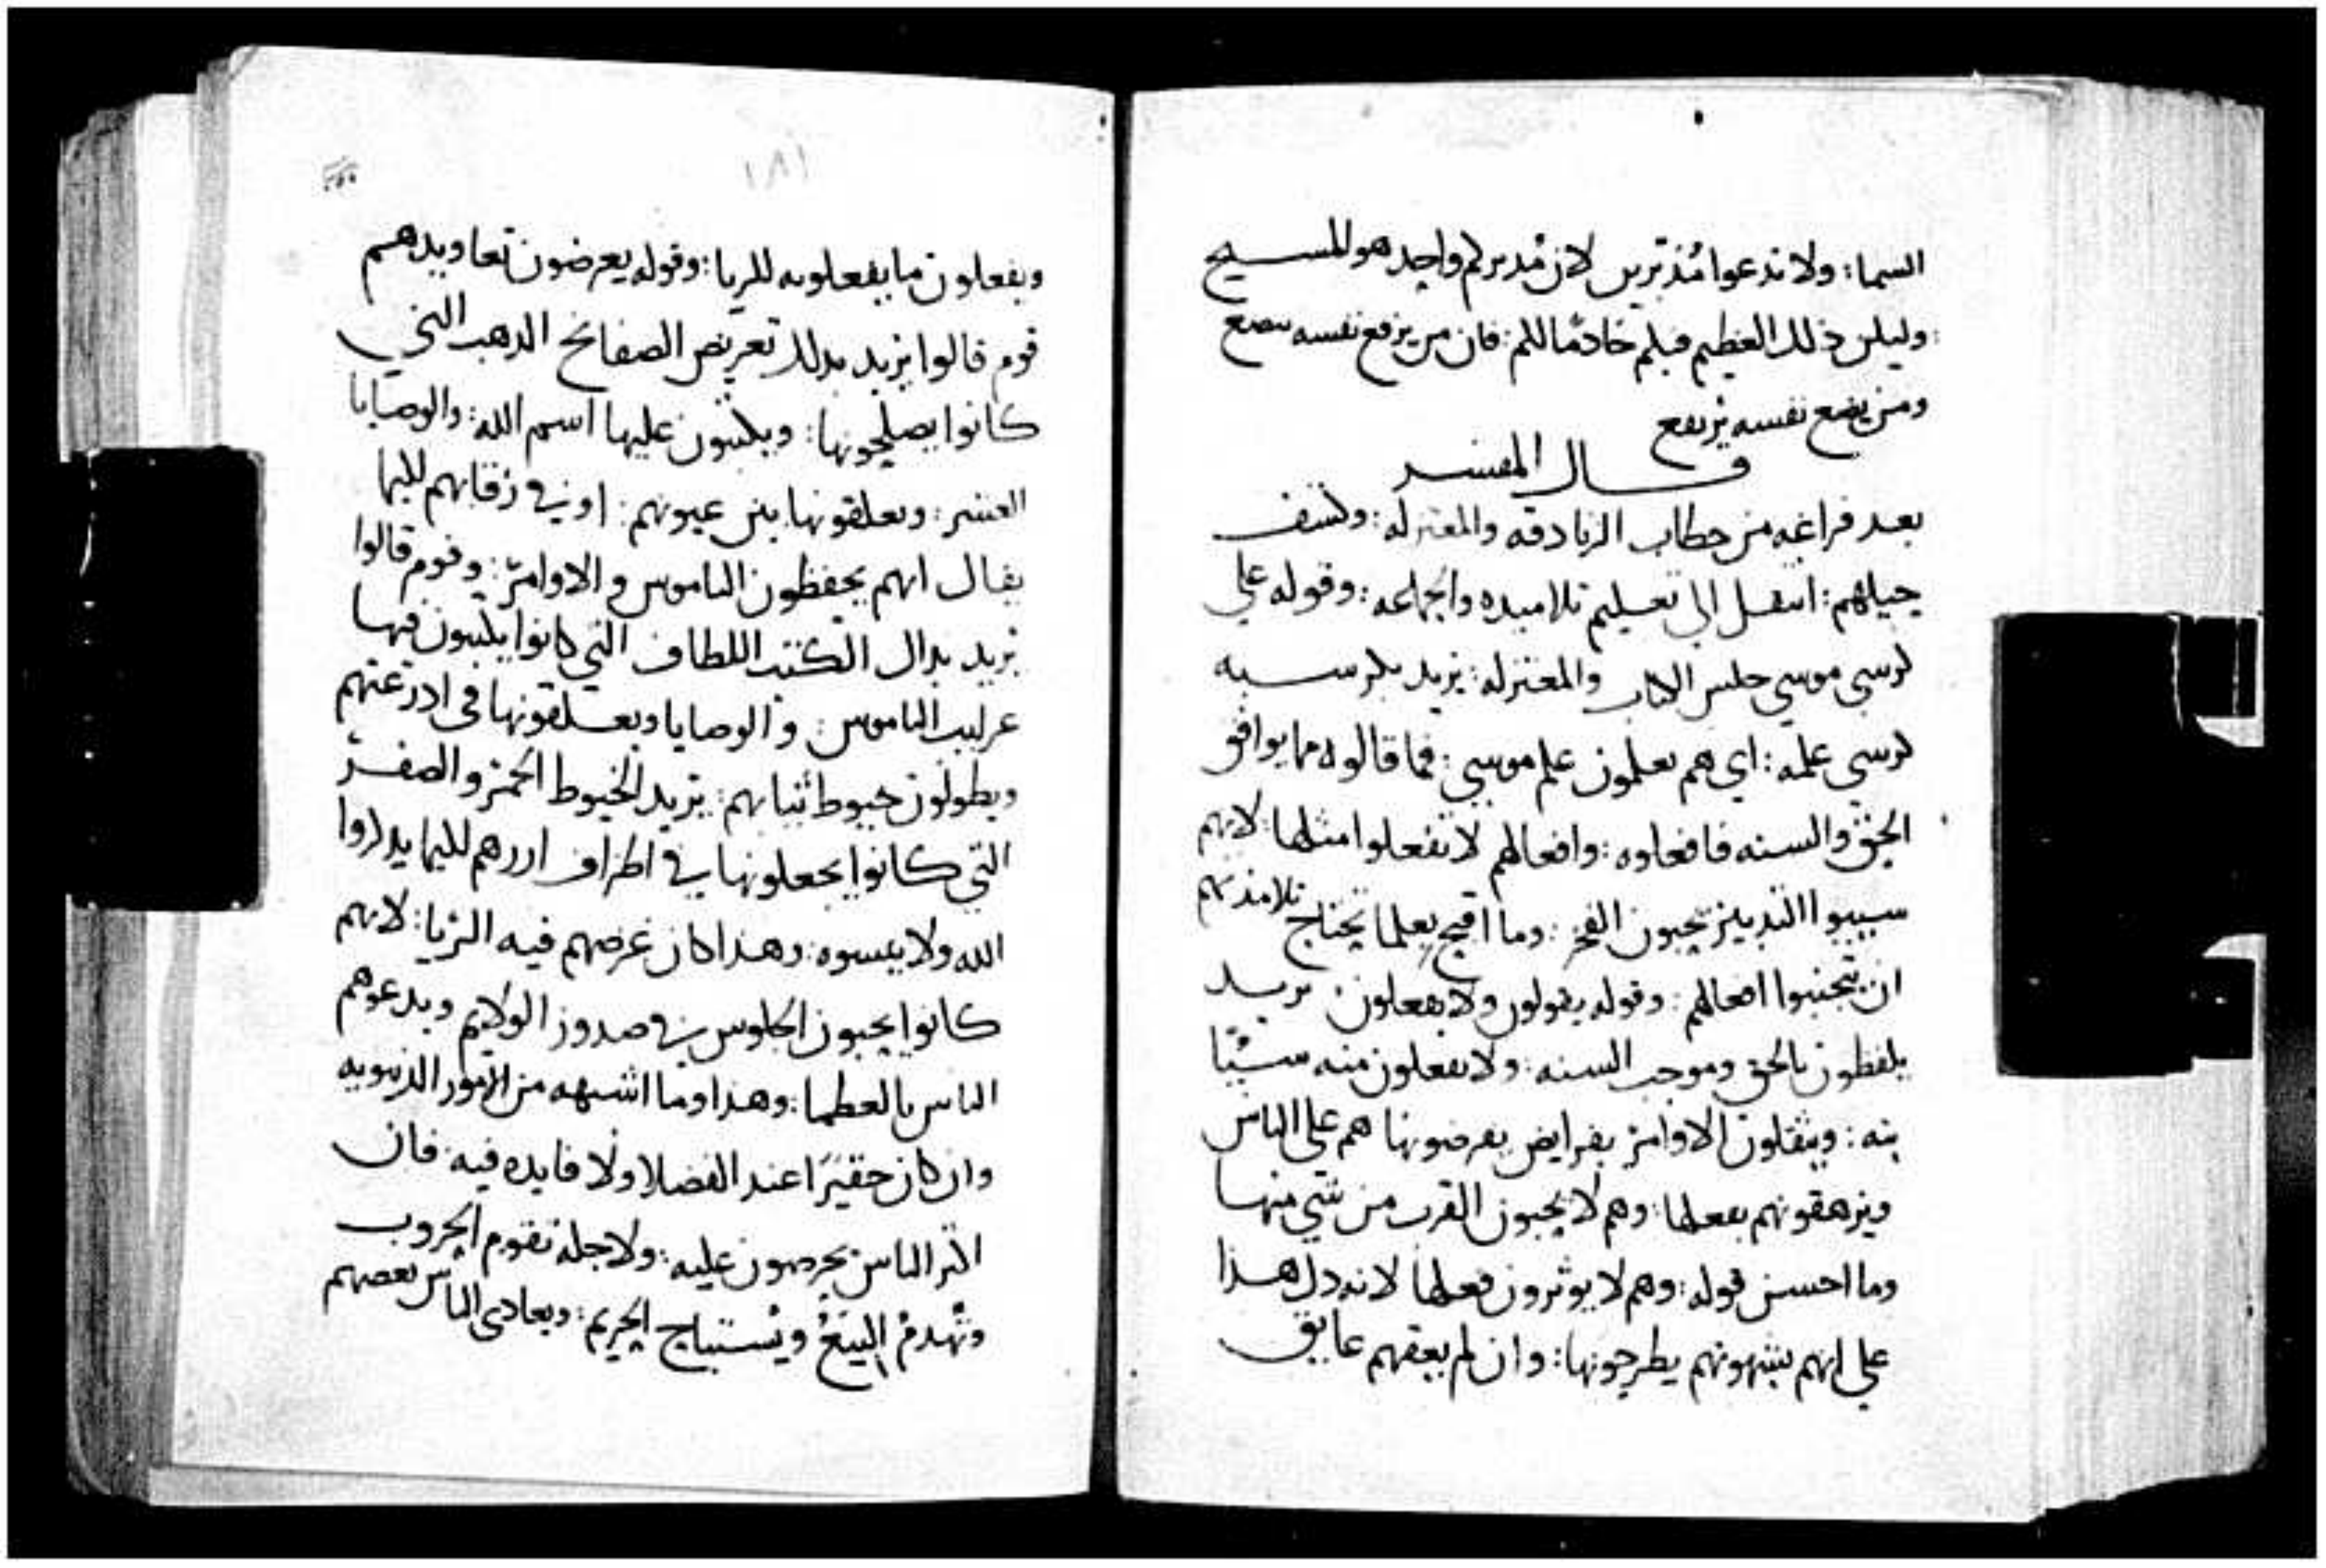 السما: ولا تدعوا مُدَبّرين لان مُدبركم واحد هو المسيح
: وليكن ذلك العظيم فيكم خادمًا لكم: فان من يرفع نفسه يتضع
ومن يضع نفسه يرتفع
قال المفسر
بعد فراغه من خطاب الزنادقه والمعتزله: وكشف
حيلهم: انتقل الي تعليم تلاميده والجماعه: وقوله علي
كرسي موسي جلس الكتاب والمعتزله: يريد بكرسيه
كرسي علمه: اي هم يعلمون علم موسي: فما قالوه مما يوافق
الحق والسنه فافعلوه: وافعالهم لا تفعلوا مثلها: لانهم
يحبون الفخر: وما اقبح بعلما يحتاج تلامذتهم
ان يتجنبوا افعالهم: وقوله يقولون ولا يفعلون يريد
يلفظون بالحق وموجب السنه: ولا يفعلون منه شيًا
بته: ويثقلون الاوامر بفرايض يفرضونها هم علي الناس
ويرهقونهم بفعلها: وهم لا يحبون القرب من شي منها
وما احسن قوله: وهم لا يوثرون فعلها لانه دل هذا
علي انهم بشهوتهم يطرحونها: وان لم يعقهم عايق
١٨١
ويفعلون ما يفعلونه للريا: وقوله يعرضون تعاويدهم
قوم قالوا يريد بدلك تعريض الصفايح الدهب التي
كانوا يصلحونها: ويكتبون عليها اسم الله: والوصايا
العشر: ويعلقونها بين عيونهم: او في رقابهم لكيما
يقال انهم يحفظون الناموس والاوامر: وقوم قالوا
يريد بدلك الكتب اللطاف التي كانوا يكتبون فيها
الناموس: والوصايا ويعلقونها في ادرعتهم
ويطولون خيوط ثيابهم: يريد الخيوط الحمر والصفر
التي كانوا يجعلونها في اطراف ازرهم لكيما يدكروا
الله ولا ينسوه: وهذا كان غرضهم فيه الريا: لانهم
كانوا يحبون الجلوس في صدور الولايم ويدعوهم
الناس بالعظما: وهذا وما اشبهه من الامور الدنيويه
وان كان حقيرًا عند الفضلا ولا فايده فيه: فان
اكثر الناس يحرصون عليه: ولاجله تقوم الحروب
وتُهدمُ البيَعُ ويُستباح الحريم: ويعادي الناس بعضهم